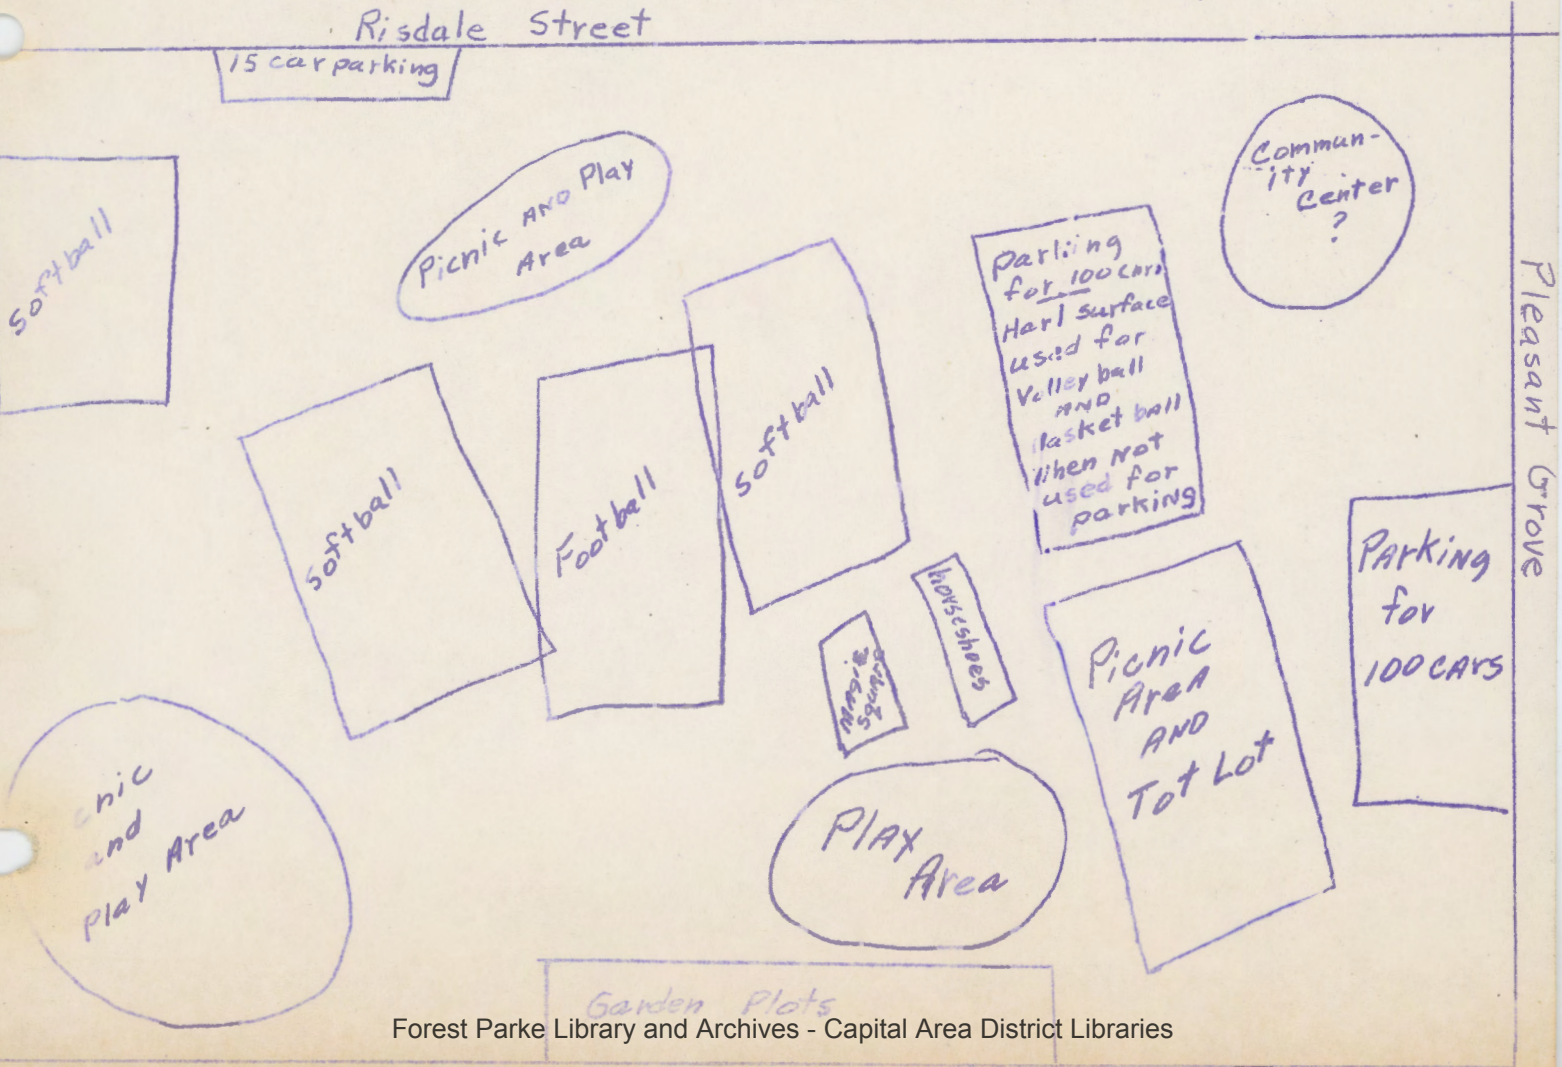 Risdale Street
15 car parking
Commun-
ity
Center
?
Softball
Picnic AND Play
Area
Parking
for 100 cars
Hard surface
used for
Volley ball
AND
Basket ball
When Not
used for
parking
Pleasant Grove
Softball
Football
Softball
Parking
for
100 CARS
horseshoes
Magic
Square
Picnic
Area
AND
Tot Lot
cnic
and
play Area
Play
Area
Garden Plots
Forest Parke Library and Archives - Capital Area District Libraries